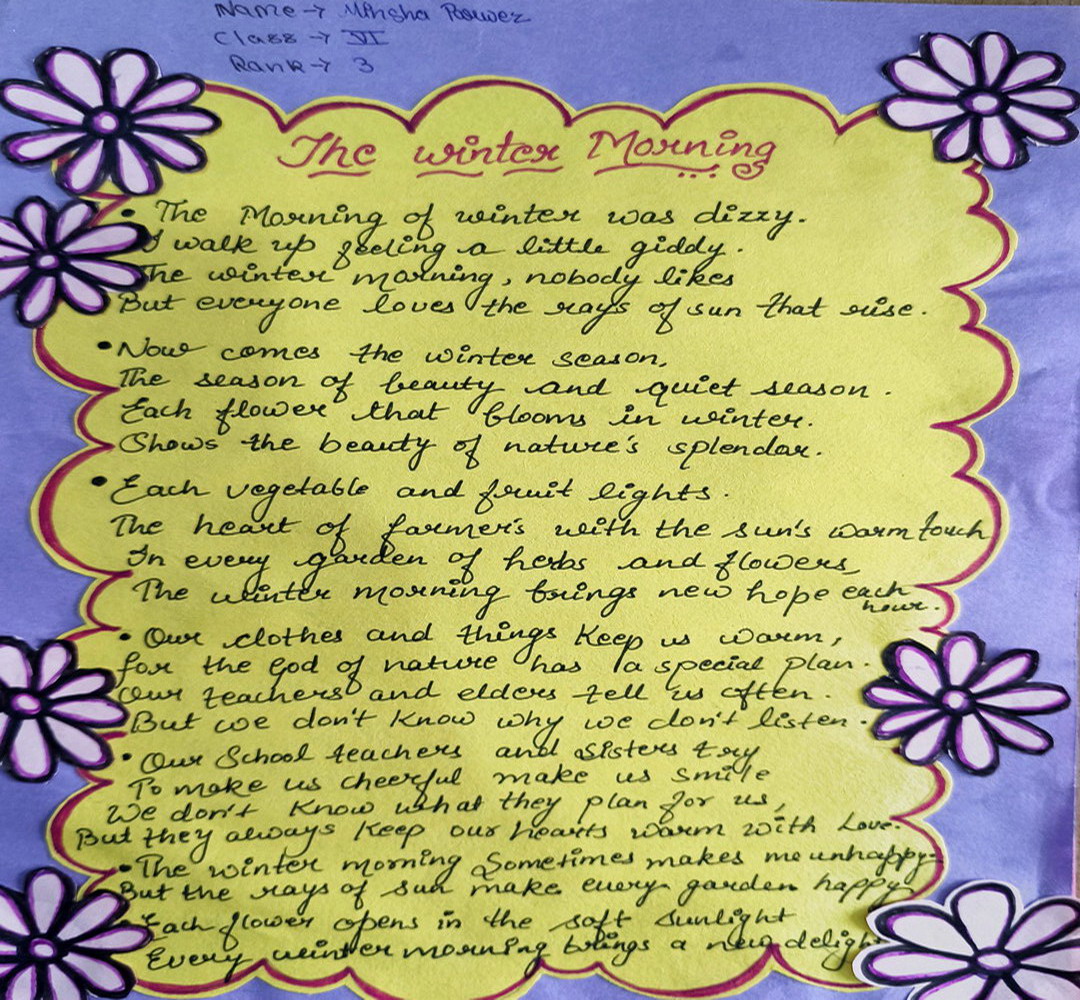 Name → Minsha Power
Class → VI
Rank → 3
The winter Morning
• The Morning of winter was dizzy.
I walk up feeling a little giddy.
The winter morning, nobody likes
But everyone loves the rays of sun that rise.
• Now comes the winter season,
The season of beauty and quiet season.
Each flower that blooms in winter.
Shows the beauty of nature's splendor.
• Each vegetable and fruit lights.
The heart of farmer's with the sun's warm touch
In every garden of herbs and flowers,
The winter morning brings new hope each
hour.
• Our clothes and things Keep us warm,
for the God of nature has a special plan.
Our teachers and elders tell us often.
But we don't Know why we don't listen.
• Our School teachers and Sisters try
To make us cheerful make us smile
We don't Know what they plan for us,
But they always Keep our hearts warm with Love.
• The winter morning Sometimes makes me unhappy
But the rays of sun make every garden happy
• Each flower opens in the soft sunlight
Every winter morning brings a new delight